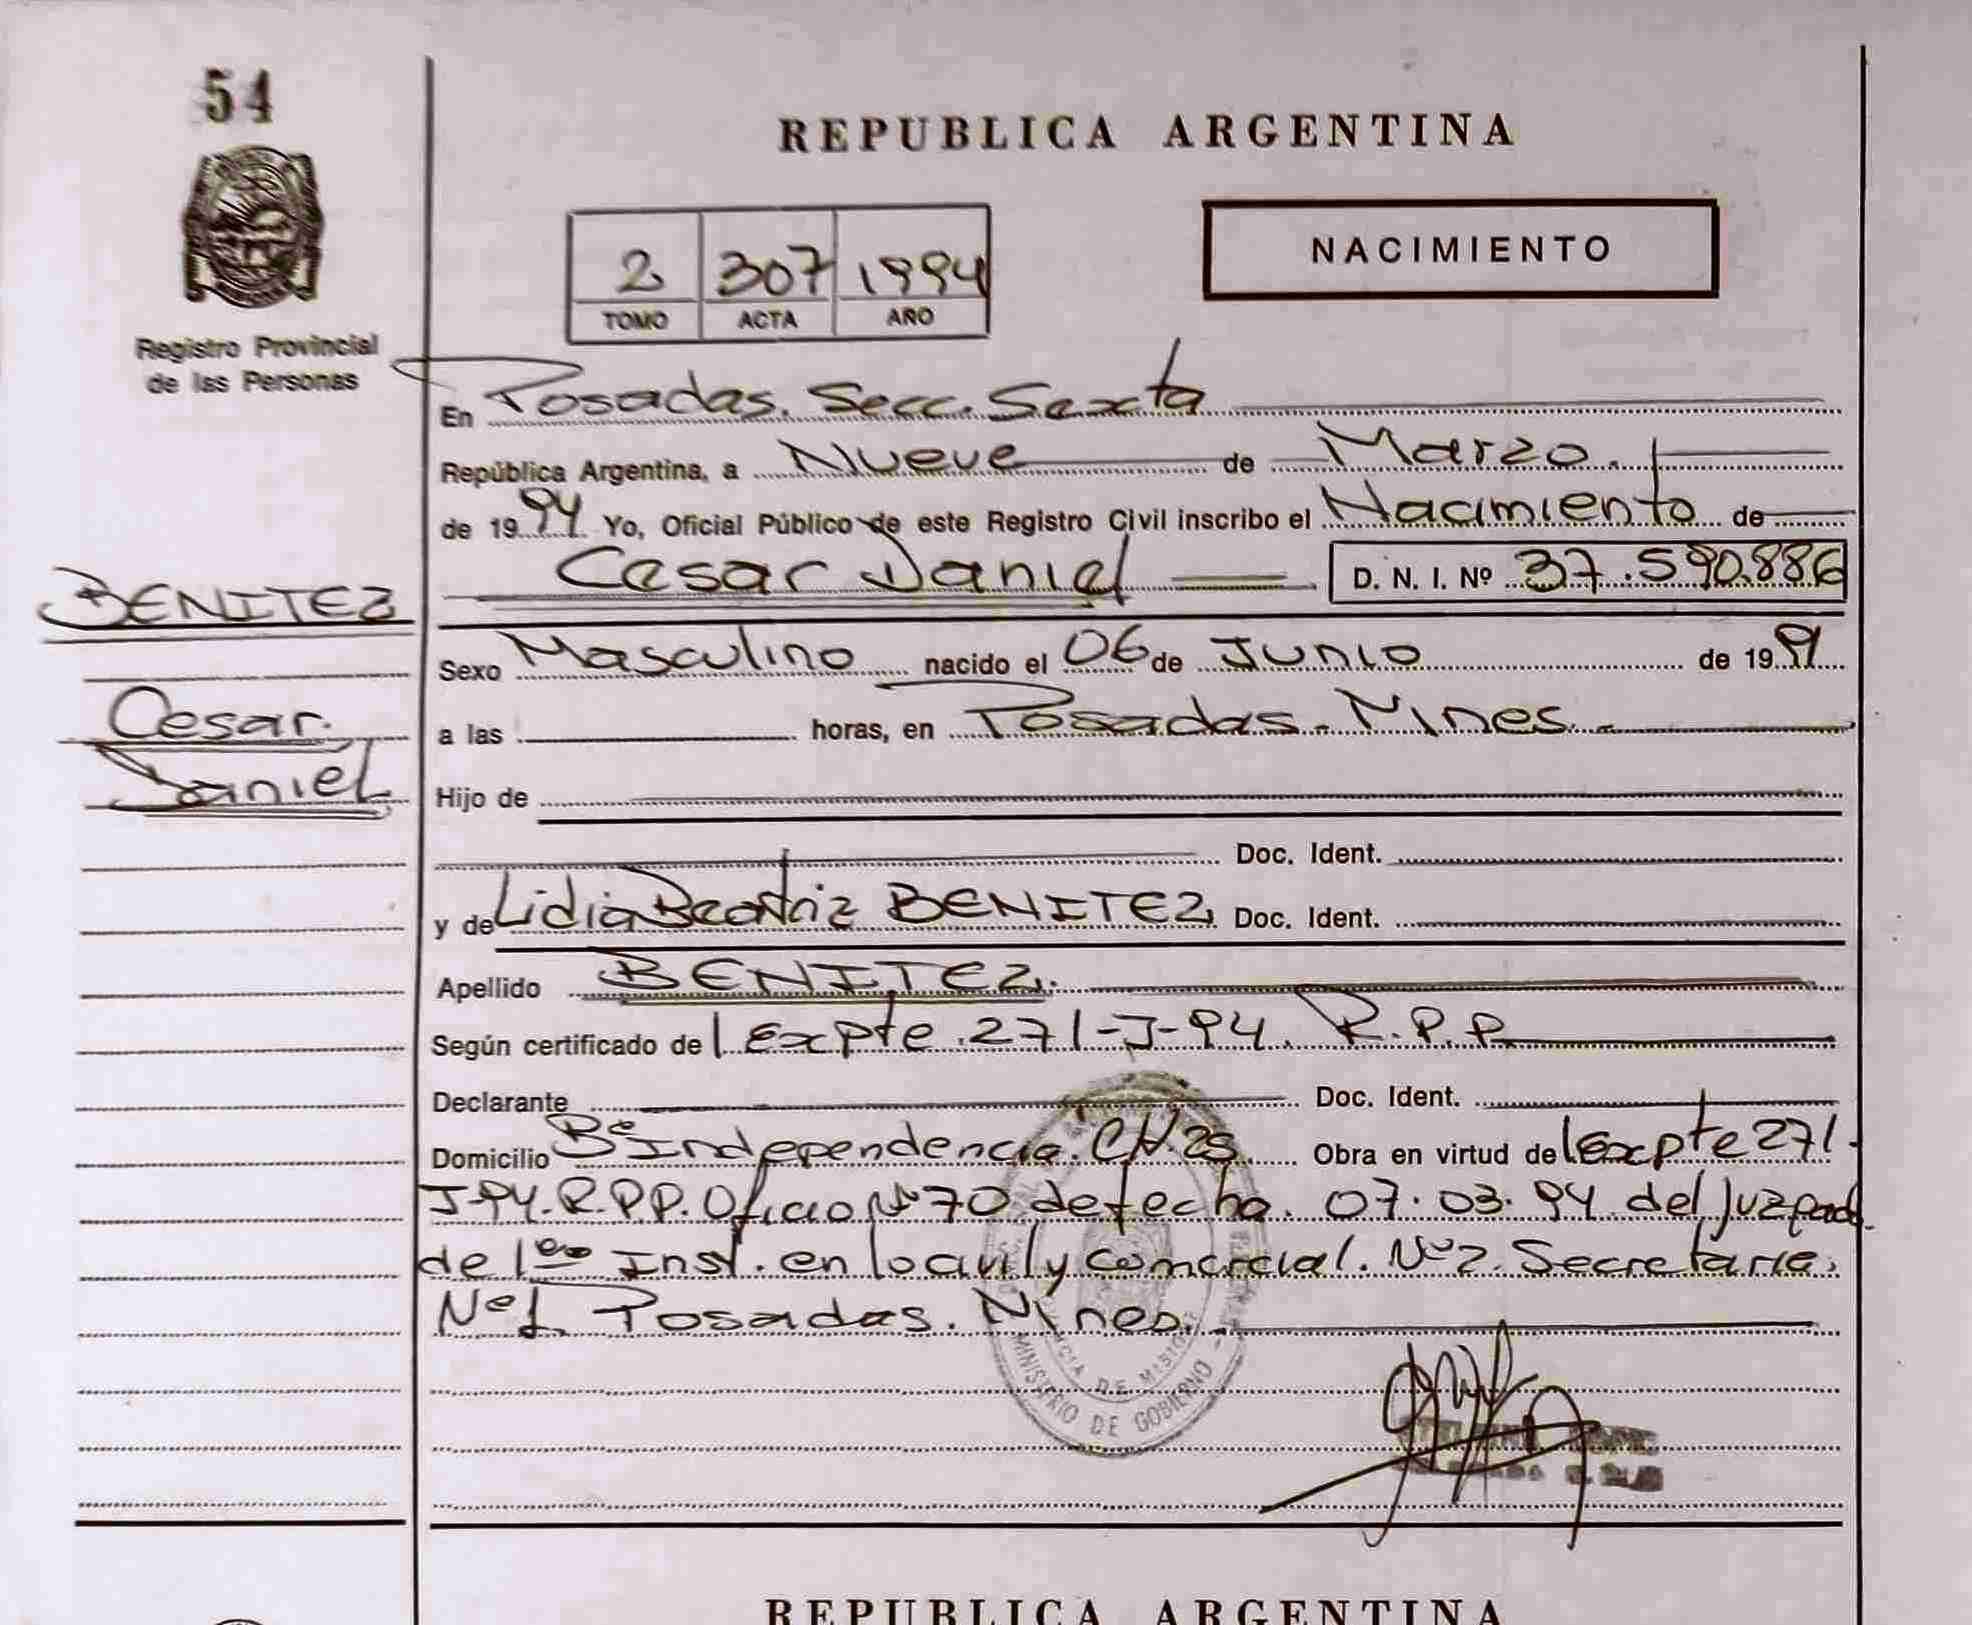 54
REPUBLICA ARGENTINA
NACIMIENTO
2 307 1994
TOMO ACTA AÑO
Registro Provincial
de las Personas
En Posadas. Secc. Sexta
República Argentina, a Nueve de Marzo.
de 1994 Yo, Oficial Público de este Registro Civil inscribo el Nacimiento de
Cesar Daniel D. N. I. Nº 37.590.886
BENITEZ
Cesar
Daniel
Sexo Masculino nacido el 06 de Junio de 19
a las horas, en Posadas. Mnes.
Hijo de
Doc. Ident.
y de Lidia Beatriz BENITEZ Doc. Ident.
Apellido BENITEZ.
Según certificado de Expte. 271-J-94. R.P.P.
Declarante Doc. Ident.
Domicilio Bº Independencia. CH. 25 Obra en virtud del Expte 271-
J-94. R.P.P. Oficio Nº 70 de fecha. 07.03.94 del Juzgado
de 1era Inst. en lo civil y comercial. Nº 2. Secretaria.
Nº 1. Posadas. Mnes.
MINISTERIO DE GOBIERNO
REPUBLICA ARGENTINA